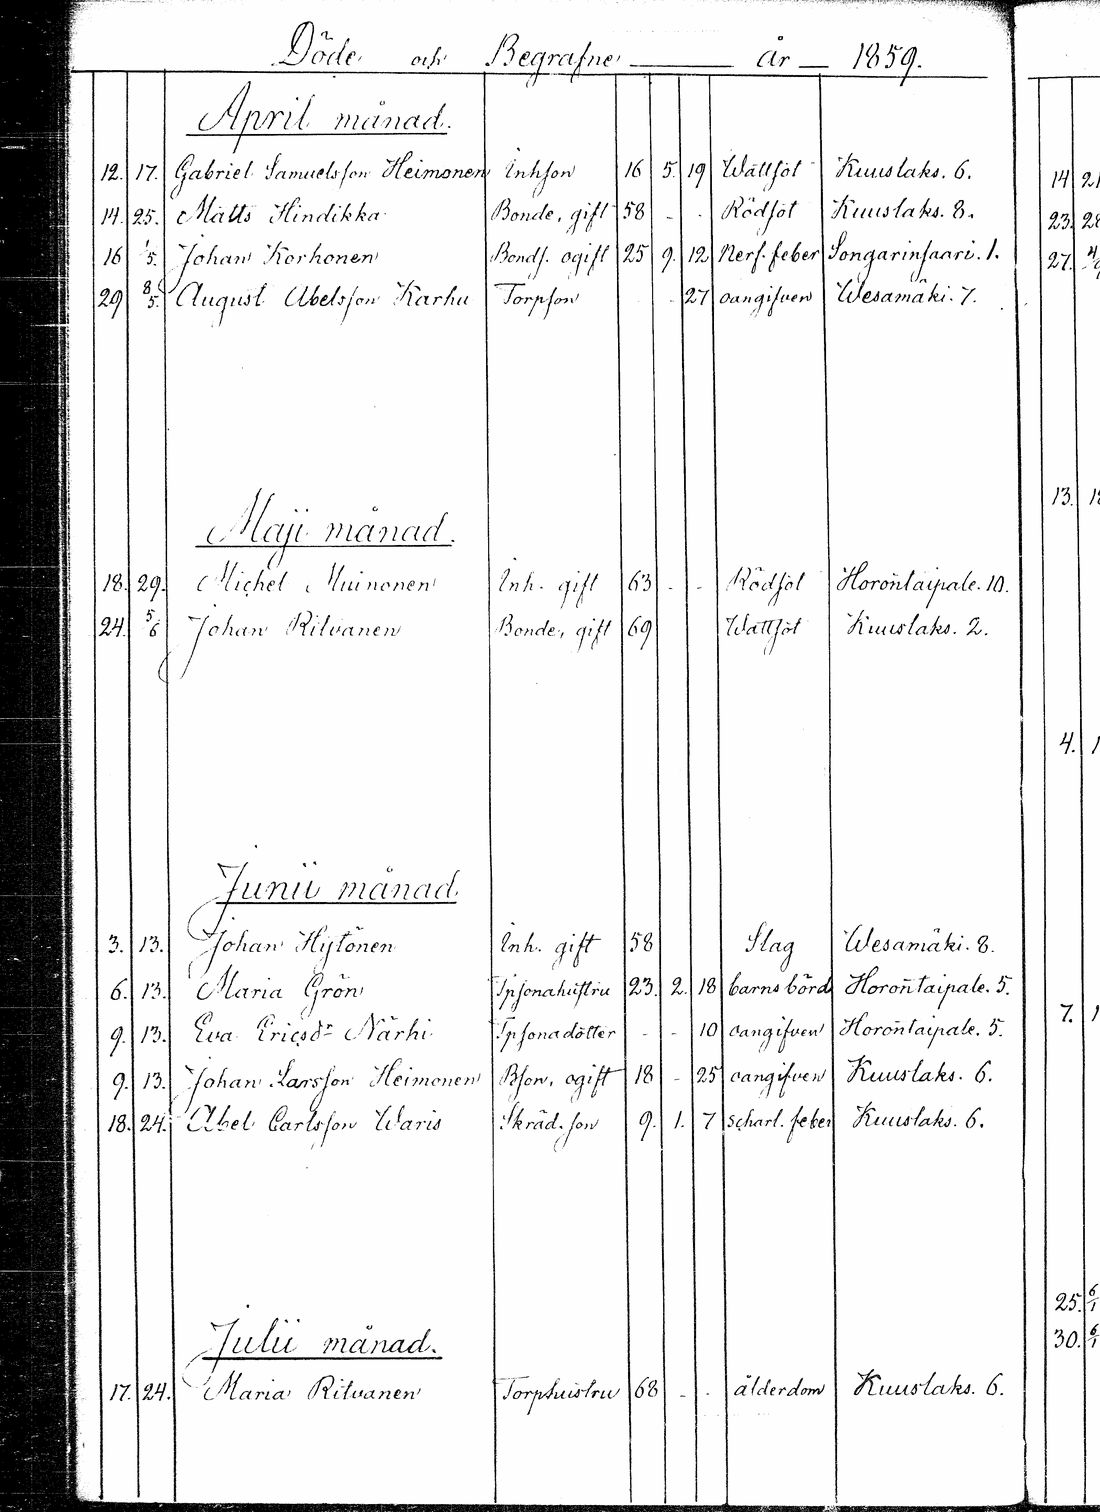 Döde och Begrafne ——— år — 1859.
April månad.
12. 17. Gabriel Samuelsson Heimonen Inhson 16 5. 19 Wattsot Kuuslaks. 6.
14. 25. Matts Hindikka Bonde, gift 58 - - Rödsot Kuuslaks. 8.
16 1/5. Johan Korhonen Bonds. ogift 25 9. 12 Nerf. feber Songarinsaari. 1.
29 8/5. August Abelsson Karhu Torpson 27 oangifven Wesamäki. 7.
Maji månad.
18. 29. Michel Muinonen Inh. gift 63 - - Rödsot Horontaipale. 10.
24. 5/6 Johan Ritvanen Bonde, gift 69 Wattsot Kuuslaks. 2.
Junii månad
3. 13. Johan Hytönen Inh. gift 58 Slag Wesamäki. 8.
6. 13. Maria Grön Tpsonahustru 23. 2. 18 barnsbörd Horontaipale. 5.
9. 13. Eva Ericsdr Närhi Tpsonadotter - - 10 oangifven Horontaipale. 5.
9. 13. Johan Larsson Heimonen Bson, ogift 18 - 25 oangifven Kuuslaks. 6.
18. 24. Abel Carlsson Waris Skräd. son 9. 1. 7 Scharl. feber Kuuslaks. 6.
Julii månad.
17. 24. Maria Ritvanen Torphustru 68 - - ålderdom Kuuslaks. 6.
14
23.
27.
13.
4.
7.
25. 6/1
30. 6/1